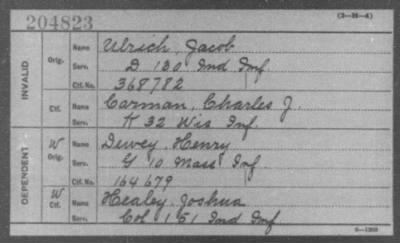 204823
(3-M-4)
INVALID
Orig. Name Ulrich, Jacob
Serv. D 130 Ind Inf.
Ctf. No. 368782
Ctf. Name Carman, Charles J.
Serv. K 32 Wis Inf.
DEPENDENT
W Orig. Name Dewey, Henry
Serv. G 10 Mass Inf
Ctf. No. 164679
W Ctf. Name Healey, Joshua
Serv. Col 151 Ind Inf